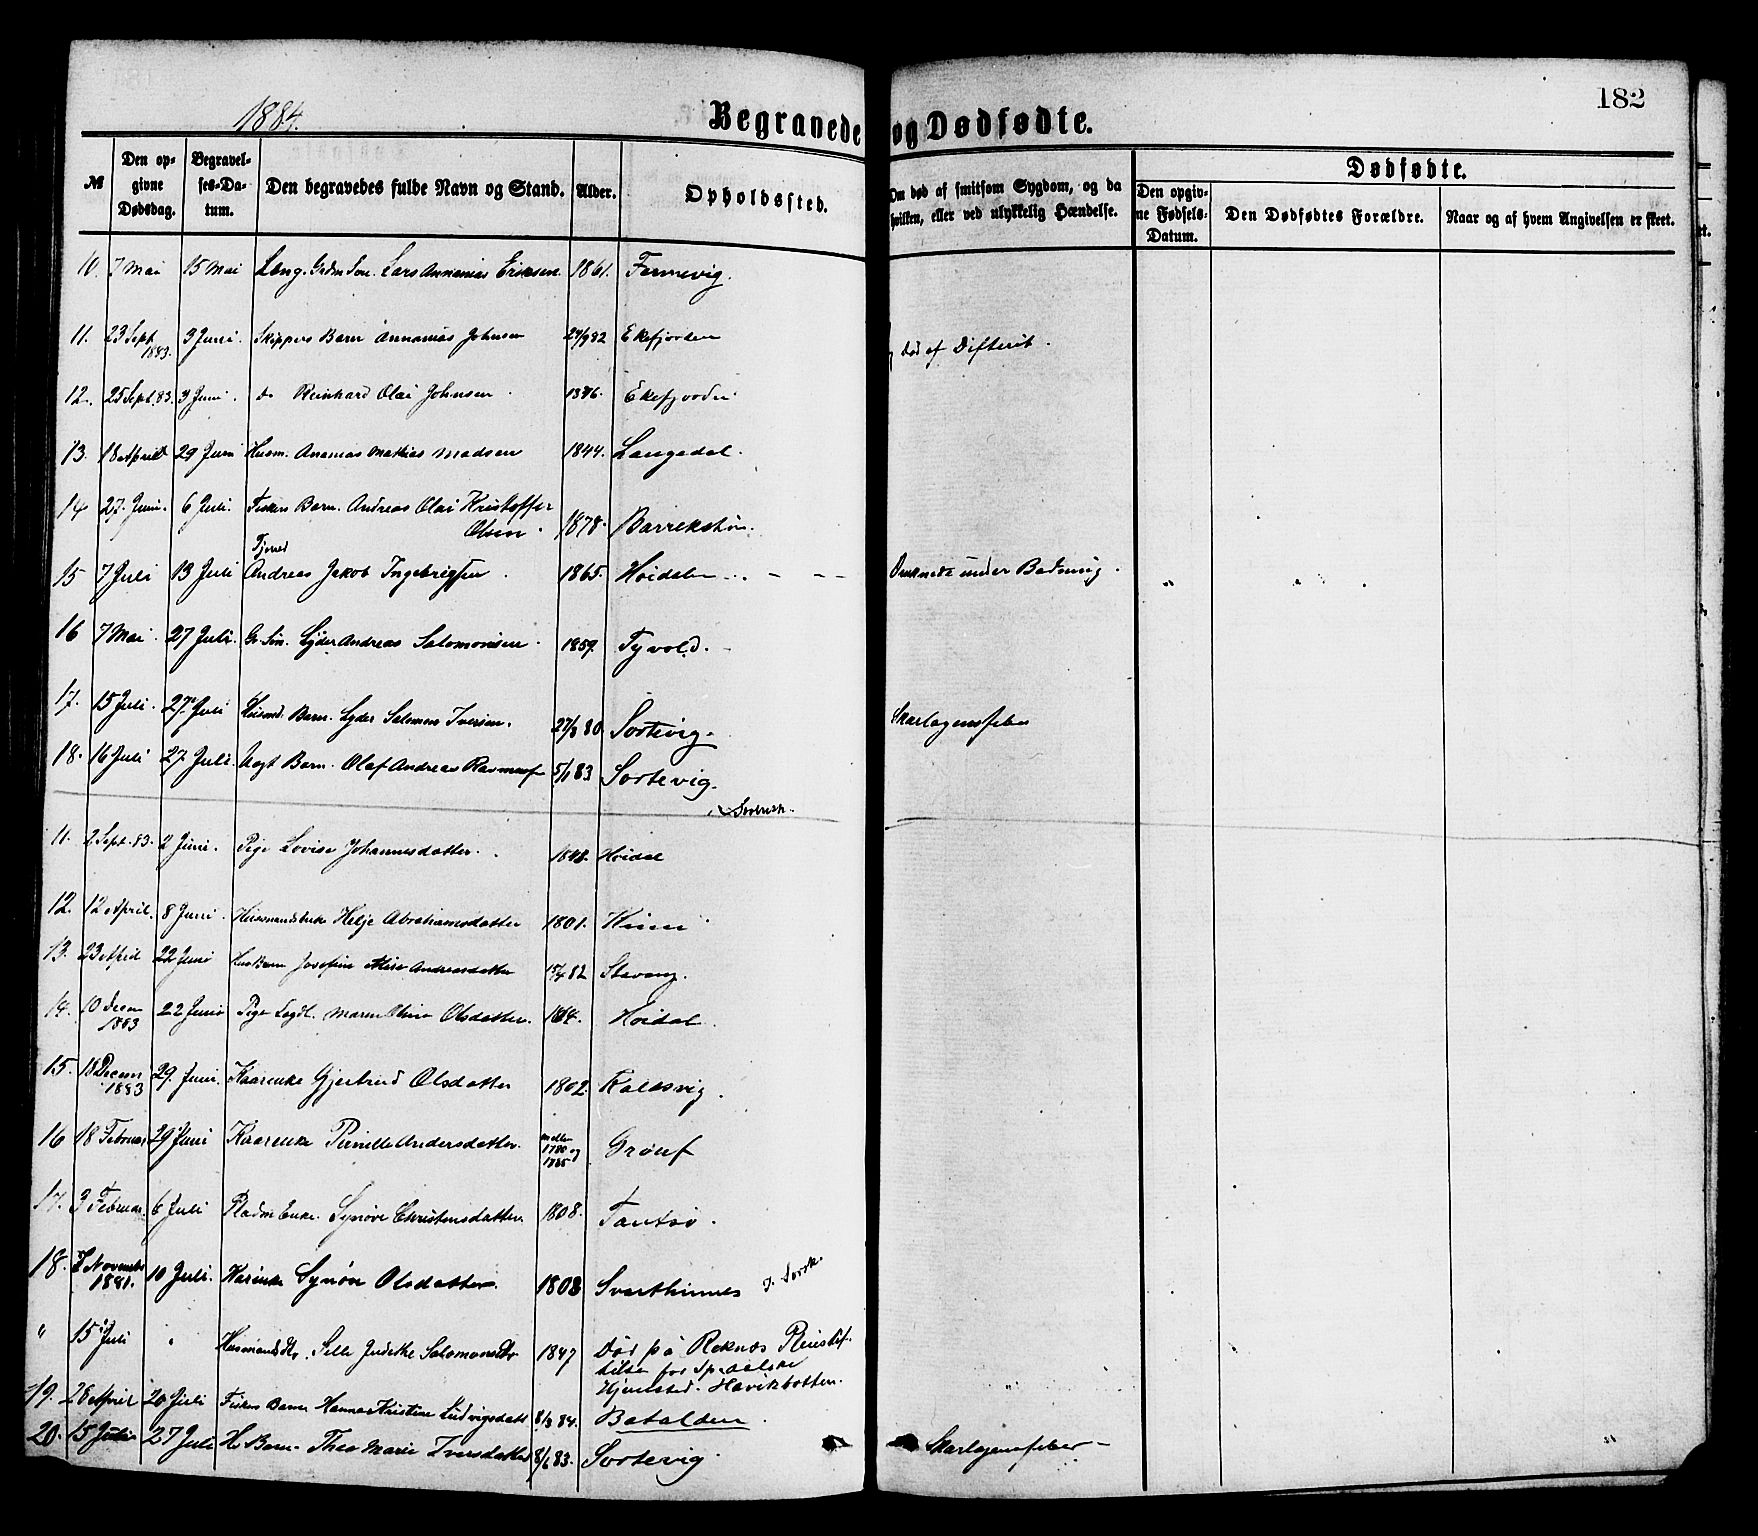 1884.
Begravede og Dødfødte.
182
№ Den opgivne Dødsdag. Begravelses-Datum. Den begravedes fulde Navn og Stand. Alder. Opholdssted. Om død af smitsom Sygdom, og da hvilken, eller ved ulykkelig Hændelse. Den opgivne Fødsels-Datum. Den Dødfødtes Forældre. Naar og af hvem Angivelsen er skeet.
Dødfødte.
10. 7 Mai 15 Mai Grdm Søn. Lars Annanias Eriksen 1861. Femevig.
11. 23 Sept 1883. 3 Juni. Skippers Barn Annanias Johnsen 82 Ekefjorden død af Difterit.
12. 25 Sept. 83. 3 Juni. do Reinhard Olai Johnsen 1876. Ekefjorden
13. 18 April 29 Juni Husm. Ananias Mathias Madsen 1844. Langedal.
14 27. Juni. 6 Juli. Barn. Andreas Olai Kristoffer
Olsen. 1878. Barrekstøn.
15 7 Juli 13 Juli Andreas Jakob Ingebrigtsen 1865. Høidalen Druknede under Badning.
16 7 Mai. 27 Juli. Gr Søn. Lyder Andreas Salomonsen 1859. Tyvold.
17. 15 Juli. 27. Juli Husmd. Barn. Lyder Salomon Iversen. 80 Sortevig. Skarlagensfeber
18. 16 Juli 27. Juli. Barn. Olaf Andreas 5/1 83 Sortevig.
11. 2 Sept. 83. 2 Juni. Pige Lovise Johannesdatter. 1848. Høidal
12. 12 April. 8 Juni. Husmandsenke Helje Abrahamsdatter 1801. Kinn
13. 23 April 22 Juni Barn Josefine Andreasdatter 82 Stavang.
14. 10 Decem 1883 22 Juni Pige Legdl. Maren Oline Olsdatter. Høidal.
15. 18 Decem 1883 29 Juni. Kaarenke Gjertrud Olsdatter 1802. Kalasvig.
16 18 Februar 29 Juni Kaarenke Pernille Andersdatter. mellem 1780 og 1785 Grønf
17. 3 Februar. 6 Juli Pladsm Enke. Synøve Christensdatter. 1808. Tansø.
18. 7 Novembr 1881. 10 Juli. Synøve Olsdatter 1808 Svarthumes
" 15 Juli " Husmands Selle Judithe Salomonsdtr 1847 Død på Reknæs Pleiestif-
telse for Spedalske
Hjemsted. Havikbotten.
19. 28 April 20 Juli Barn Hanna Kristine Ludvigsdatt 84. Batalden
20. 15 Juli 27 Juli H. Barn. Thea Marie Iversdatter 8/6 83. Sortevig. Skarlagensfeber